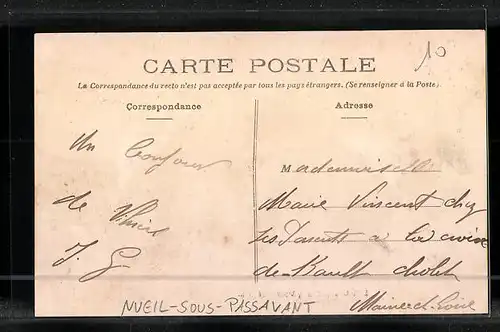 10
CARTE POSTALE
La Correspondance du recto n'est pas acceptée par tous les pays étrangers. (Se renseigner à la Poste).
Correspondance
Adresse
un bonjour
de Vihiers
J. G
Mademoiselle
Marie Vincent chez
ses Parents a la croix
de Bault cholet
Maine et Loire
NUEIL-SOUS-PASSAVANT